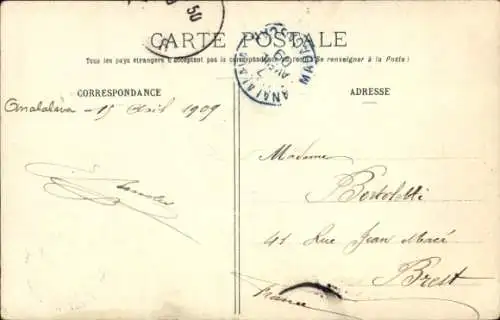 50
CARTE POSTALE
Tous les pays étrangers n'acceptent pas la correspondance au recto (Se renseigner à la Poste)
CORRESPONDANCE
ADRESSE
Analalava - 15 Avril 1909
Madame
Bortoletti
41 Rue Jean Macé
Brest
France